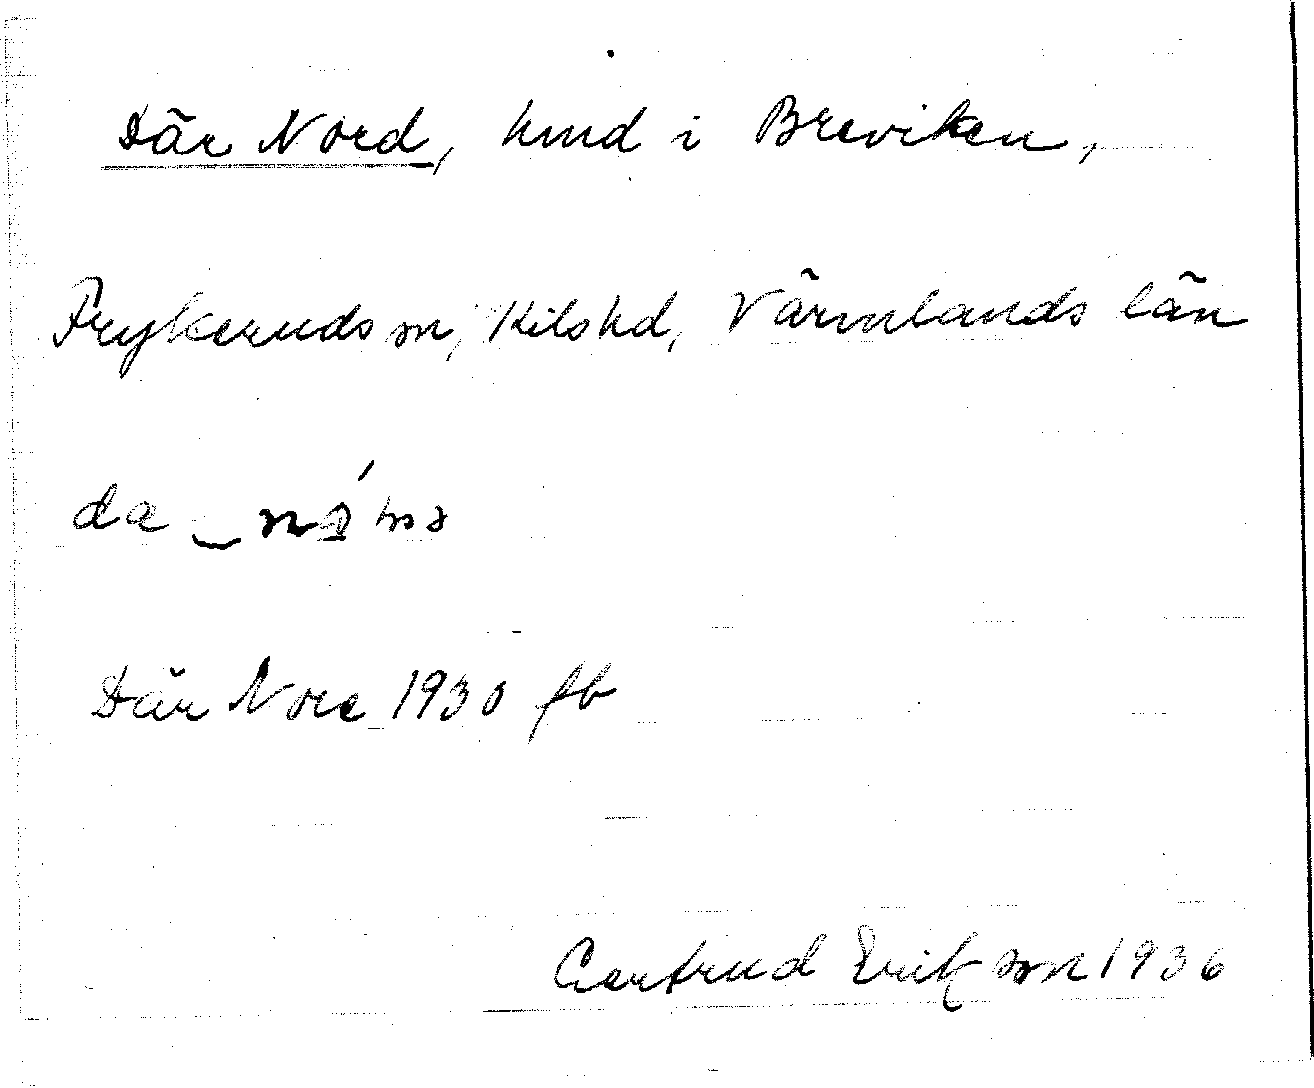 Där Nord, hmd i Breviken,
Frykeruds sn, Kils hd, Värmlands län
da
Där Nore 1930 fb
Gertrud Erikson 1936